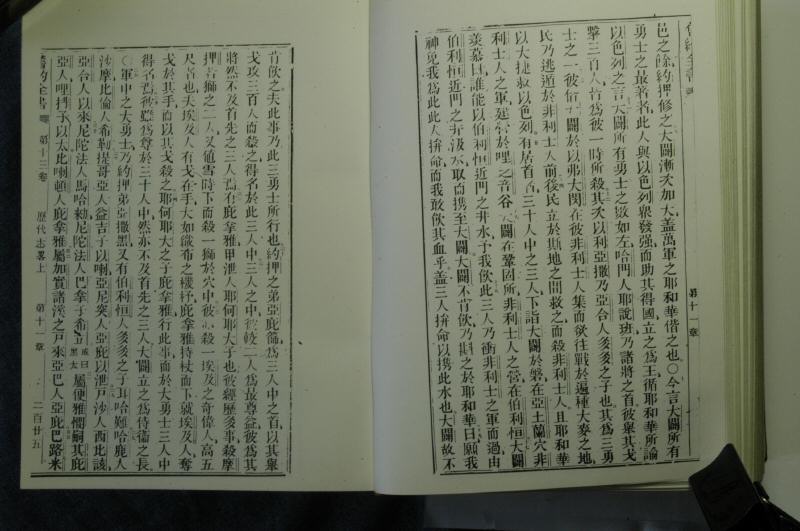 第十一章
邑之餘約押修之大闢漸次加大蓋萬軍之耶和華偕之也○今言大闢所有
勇士之最著者此人與以色列衆發强而助其得國立之爲王循耶和華所諭
以色列之言大闢所有勇士之數如左哈門人耶說班乃諸將之首彼舉其戈
擊三百人皆爲彼一時所殺其次以利亞撒乃亞合人多多之子也其爲三勇
士之一彼偕大闢於以弗大閔在彼非利士人集而欲往戰於遍種大麥之地
民乃逃遁於非利士人前後民立於斯地之間救之而殺非利士人且耶和華
以大捷救以色列有居首者三十人中之三人下詣大闢於磐在亞土蘭穴非
利士人之軍延營於哩乏音谷大闢在鞏固所非利士人之營在伯利恒大闢
羨慕曰誰能以伯利恒近門之井水予我飲此三人乃衝非利士之軍而過由
伯利恒近門之井汲水取而携至大闢大闢不肯飲乃斟之於耶和華曰願我
神免我爲此此人拚命而我敢飲其血乎蓋三人拚命以携此水也大闢故不
肯飲之夫此事乃此三勇士所行也約押之弟亞庇篩爲三人中之首以其舉
戈攻三百人而殺之得名於此三人中三人之中彼較二人爲最尊益彼爲其
將然不及首先之三人焉有庇拿雅甲泄人耶何耶大子也彼經歷多事殺摩
押者獅之二人又值雪時下而殺一獅於穴中彼亦殺一埃及之奇偉人高五
尺者也夫埃及人有戈在手大如織布之機杼庇拿雅持杖而下就埃及人奪
戈於其手而以其戈殺之耶何耶大之子庇拿雅行此事而於大勇士三人中
得名焉彼雖爲尊於三十人中然亦不及首先之三人大闢立之爲侍衛之長
○軍中之大勇士乃約押弟亞撒黑又有伯利恒人多多之子耳哈難哈鹿人
沙摩比倫人希勒提哥亞人益吉子以喇亞尼突人亞庇以泄戶沙人西比該
亞合人以來尼陀法人馬哈勑尼陀法人巴拿子希立或曰黑大屬便雅憫嗣其庇
亞人哩拜子以太比喇頓人庇拿雅屬加實諸溪之戶來亞巴人亞庇巴路米
舊約全書 第十三卷 歷代志畧上 第十一章 二百廿五